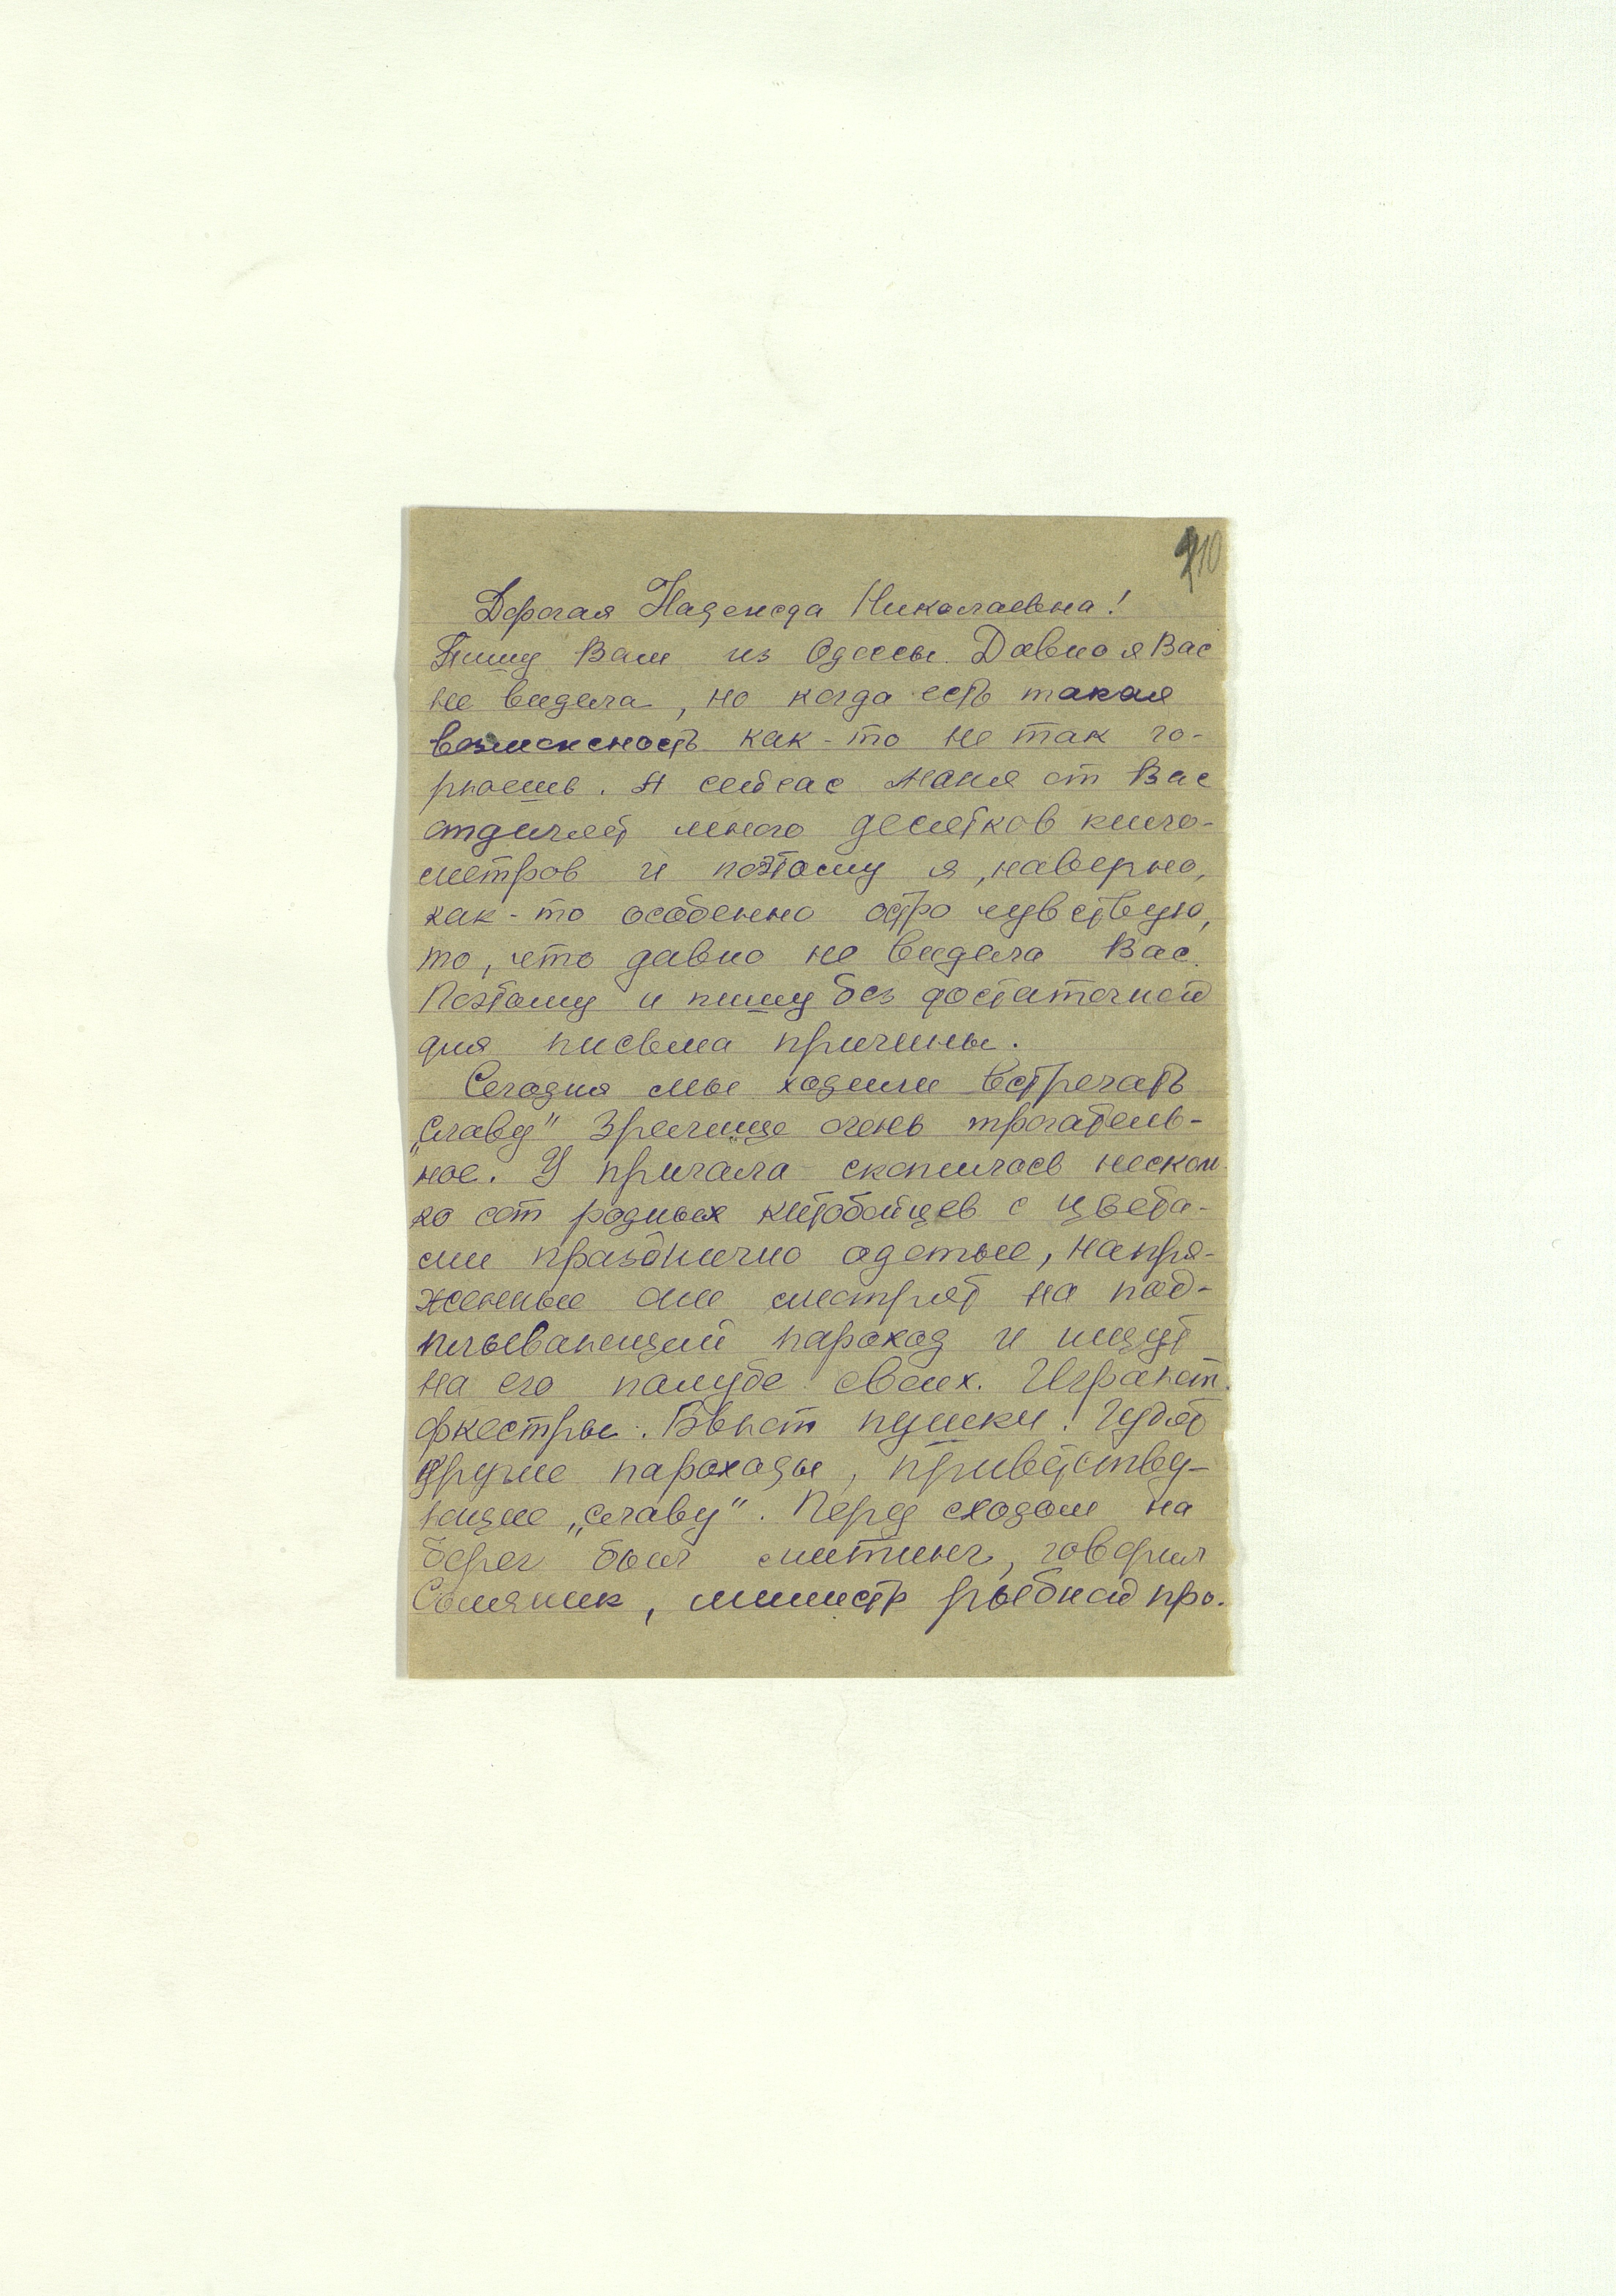 210
Дорогая Надежда Николаевна!
Пишу Вам из Одессы. Давно я Вас
не видела, но когда есть такая
возможность как-то не так го-
рюешь. А сейчас меня от Вас
отделяет много десятков кило-
метров и поэтому я, наверно,
как-то особенно остро чувствую,
то, что давно не видела Вас.
Поэтому и пишу без достаточной
для письма причины.
Сегодня мы ходили встречать
„Славу" Зрелище очень трогатель-
ное. У причала скопилось нескол
ко сот родных китобойцев с цвета-
ми празднично одетые, напря-
женные они смотрят на под-
плывающий пароход и ищут
на его палубе своих. Играют
оркестры. Бьют пушки! Гудят
другие пароходы, приветству-
ющие „Славу". Перед сходом на
берег был митинг, говорил
Соляник, министр рыбной про.